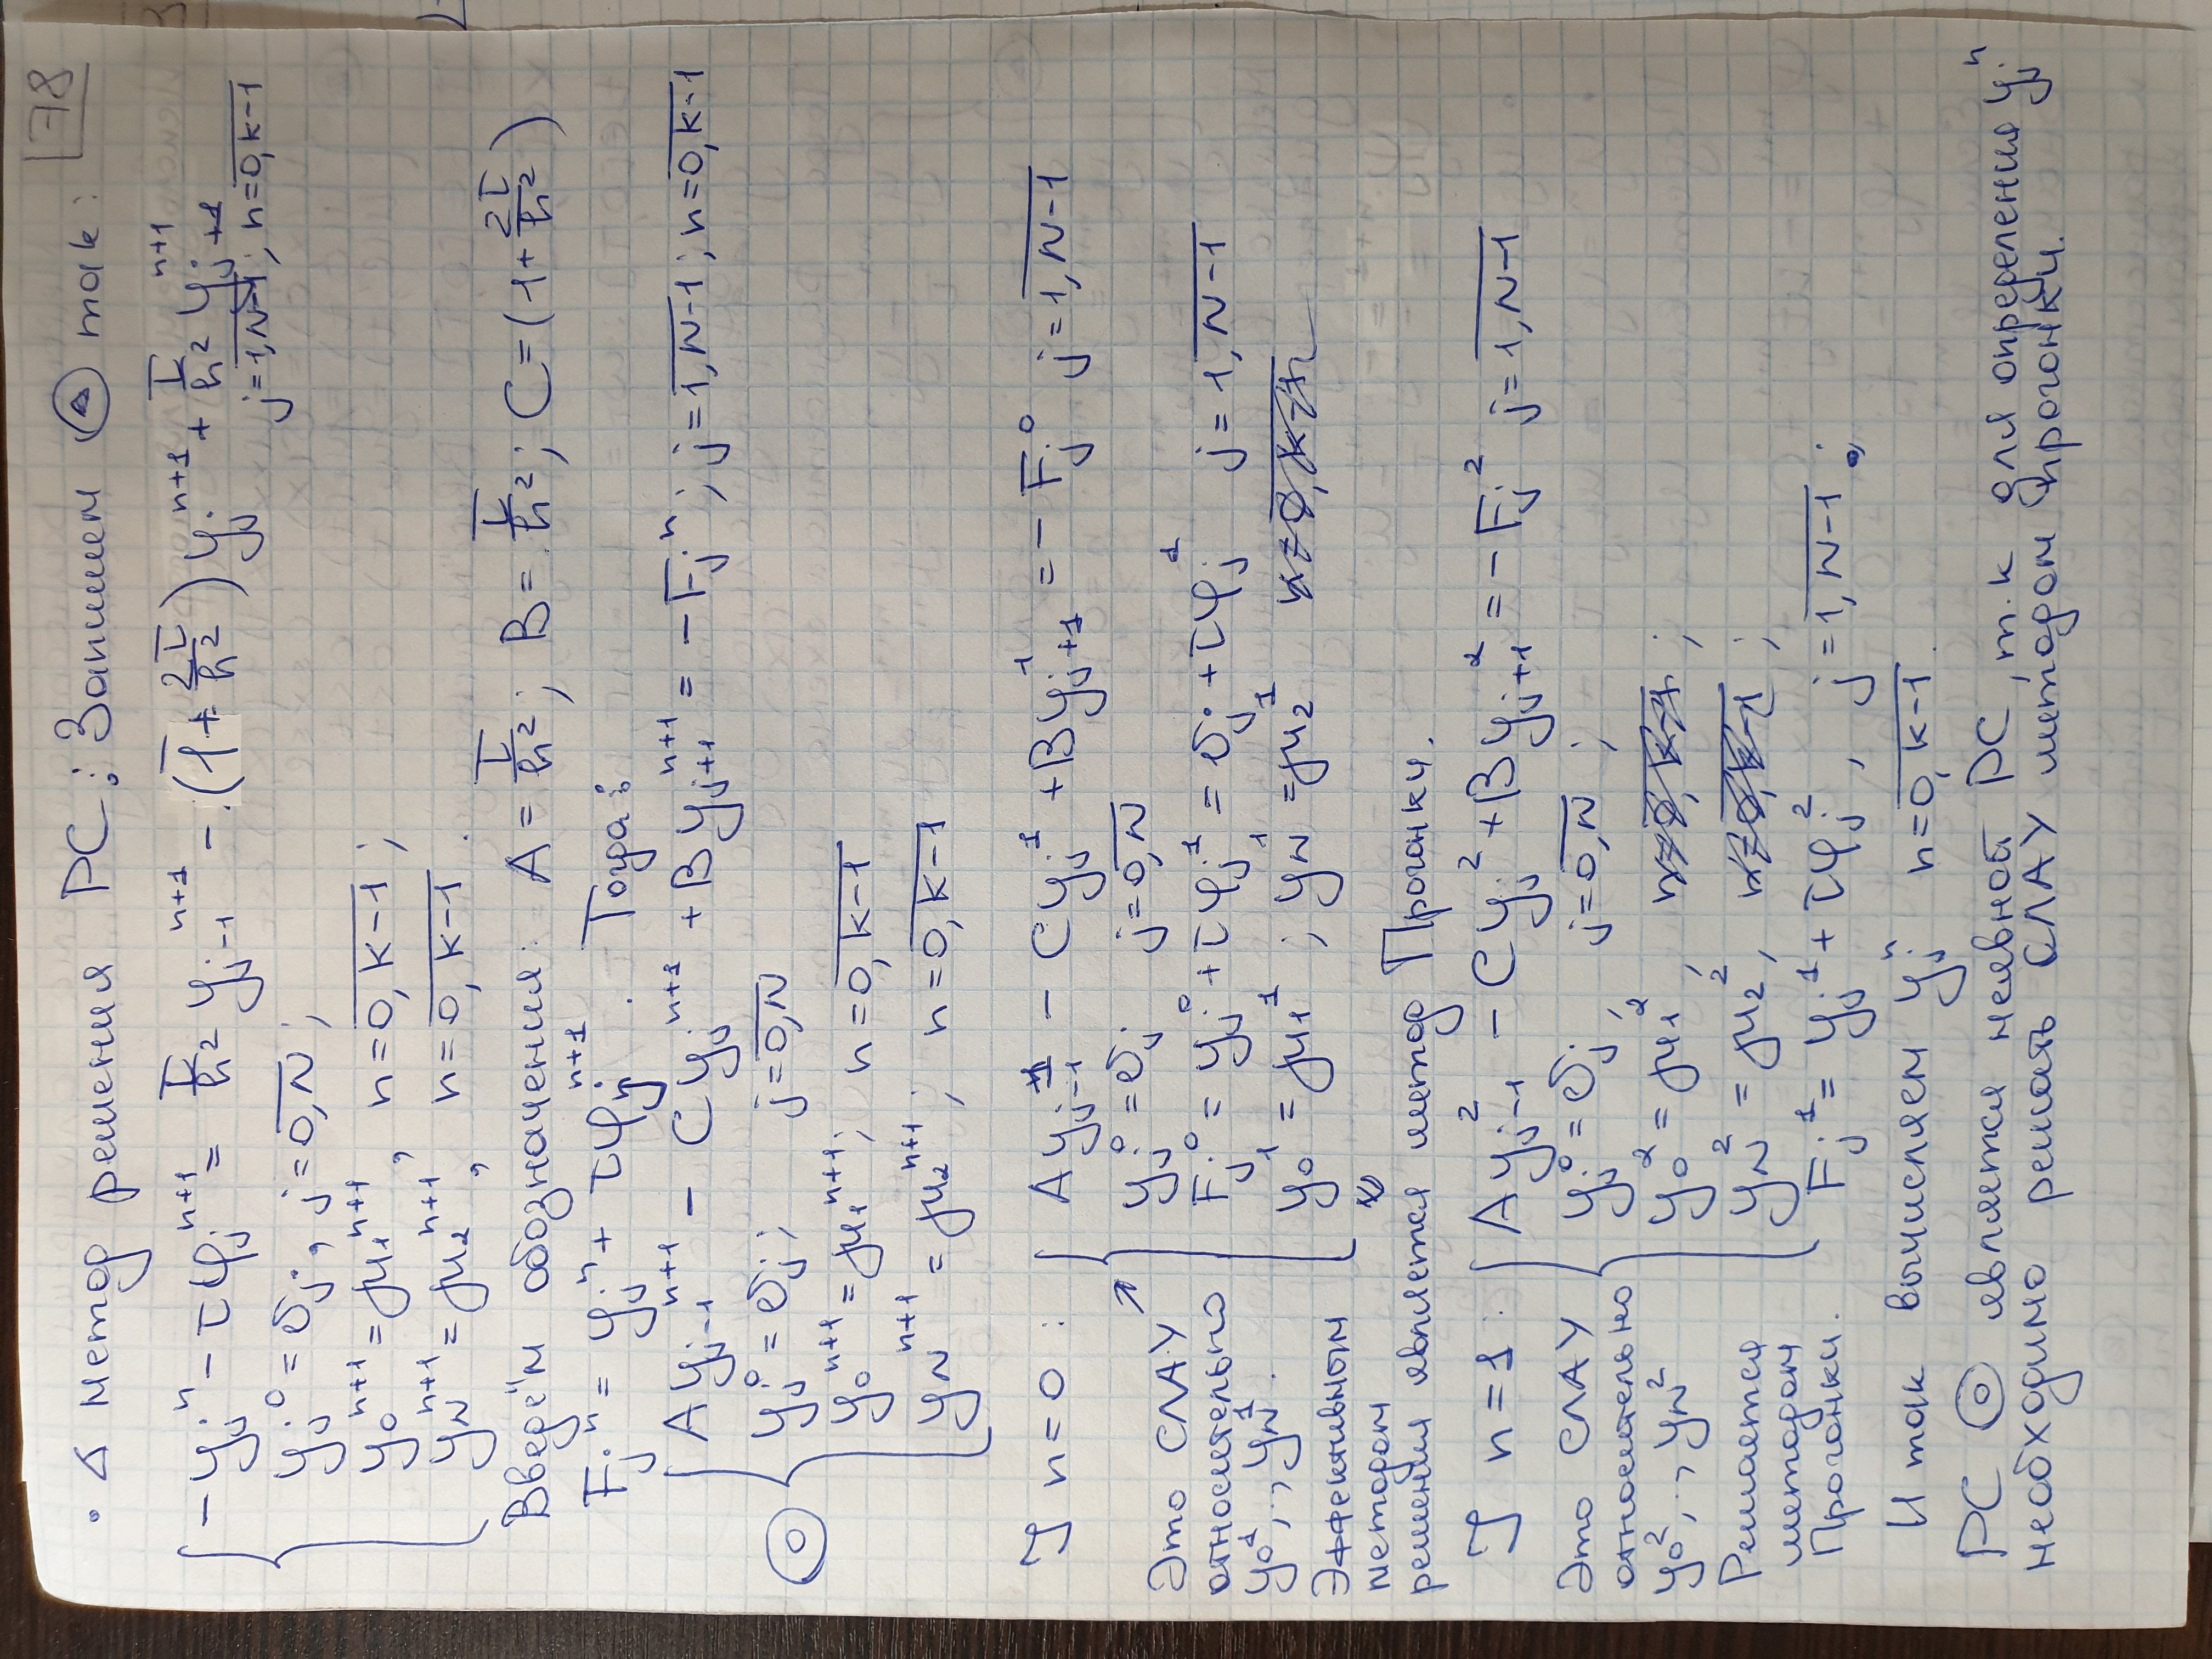 78
• Δ Метод решения РС: Запишем Ⓐ так:
{ -y_j^n - τφ_j^{n+1} = τ/h² y_{j-1}^{n+1} - (1 + 2τ/h²) y_j^{n+1} + τ/h² y_{j+1}^{n+1}
j = \overline{1,N-1}; n = \overline{0,k-1}
y_j^0 = σ_j, j = \overline{0,N};
y_0^{n+1} = μ_1^{n+1}, n = \overline{0,k-1};
y_N^{n+1} = μ_2^{n+1}, n = \overline{0,k-1}.
Введём обозначения: A = τ/h²; B = τ/h²; C = (1 + 2τ/h²)
F_j^n = y_j^n + τφ_j^{n+1}. Тогда:
⊙ { A y_{j-1}^{n+1} - C y_j^{n+1} + B y_{j+1}^{n+1} = -F_j^n; j = \overline{1,N-1}; n = \overline{0,k-1}
y_j^0 = σ_j; j = \overline{0,N}
y_0^{n+1} = μ_1^{n+1}; n = \overline{0,k-1}
y_N^{n+1} = μ_2^{n+1}; n = \overline{0,k-1}
n = 0: { A y_{j-1}^1 - C y_j^1 + B y_{j+1}^1 = -F_j^0 j = \overline{1,N-1}
y_j^0 = σ_j j = \overline{0,N}
F_j^0 = y_j^0 + τφ_j^1 = σ_j + τφ_j^1 j = \overline{1,N-1}
y_0^1 = μ_1^1; y_N^1 = μ_2^1
Это СЛАУ
относительно
y_0^1, ..., y_N^1.
Эффективным
методом
решения является метод Прогонки.
n = 1: { A y_{j-1}^2 - C y_j^2 + B y_{j+1}^2 = -F_j^2 j = \overline{1,N-1}
y_j^0 = σ_j, j = \overline{0,N};
y_0^2 = μ_1^2,
y_N^2 = μ_2^2,
F_j^1 = y_j^1 + τφ_j^2, j = \overline{1,N-1};
Это СЛАУ
относительно
y_0^2, ..., y_N^2
Решается
методом
Прогонки.
И так вычисляем y_j^n n = \overline{0,k-1}.
РС ⊙ является неявной РС, т.к для определения y_j^n
необходимо решать СЛАУ методом прогонки.